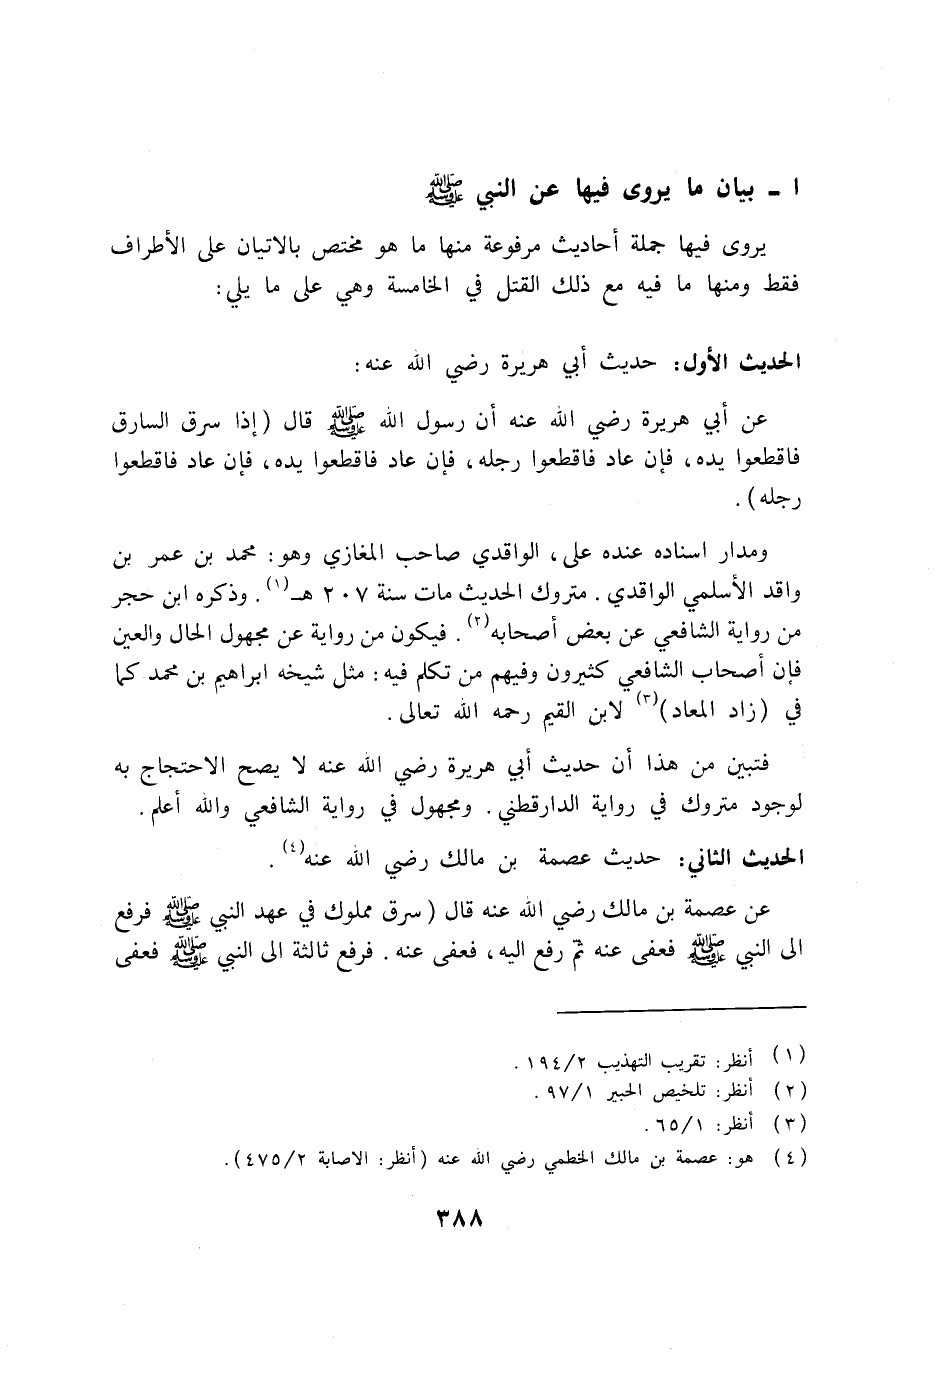 ١ ـ بيان ما يروى فيها عن النبي ﷺ
يروى فيها جملة أحاديث مرفوعة منها ما هو مختص بالاتيان على الأطراف
فقط ومنها ما فيه مع ذلك القتل في الخامسة وهي على ما يلي:
الحديث الأول: حديث أبي هريرة رضي الله عنه:
عن أبي هريرة رضي الله عنه أن رسول الله ﷺ قال (إذا سرق السارق
فاقطعوا يده، فإن عاد فاقطعوا رجله، فإن عاد فاقطعوا يده، فإن عاد فاقطعوا
رجله).
ومدار اسناده عنده على، الواقدي صاحب المغازي وهو: محمد بن عمر بن
واقد الأسلمي الواقدي. متروك الحديث مات سنة ٢٠٧ هـ(١). وذكره ابن حجر
من رواية الشافعي عن بعض أصحابه(٢). فيكون من رواية عن مجهول الحال والعين
فإن أصحاب الشافعي كثيرون وفيهم من تكلم فيه: مثل شيخه ابراهيم بن محمد كما
في (زاد المعاد)(٣) لابن القيم رحمه الله تعالى.
فتبين من هذا أن حديث أبي هريرة رضي الله عنه لا يصح الاحتجاج به
لوجود متروك في رواية الدارقطني. ومجهول في رواية الشافعي والله أعلم.
الحديث الثاني: حديث عصمة بن مالك رضي الله عنه(٤).
عن عصمة بن مالك رضي الله عنه قال (سرق مملوك في عهد النبي ﷺ فرفع
الى النبي ﷺ فعفى عنه ثم رفع اليه، فعفى عنه. فرفع ثالثة الى النبي ﷺ فعفى
(١) أنظر: تقريب التهذيب ١٩٤/٢.
(٢) أنظر: تلخيص الحبير ٩٧/١.
(٣) أنظر: ٦٥/١.
(٤) هو: عصمة بن مالك الخطمي رضي الله عنه (أنظر: الاصابة ٤٧٥/٢).
٣٨٨